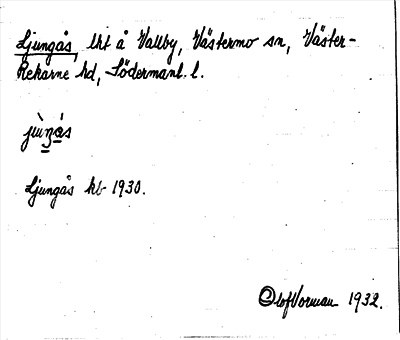 Ljungås, lht å Vallby, Västermo sn, Väster-
Rekarne hd, Södermanl. l.
jùŋås
Ljungås kb 1930.
Olof Vorman 1932.